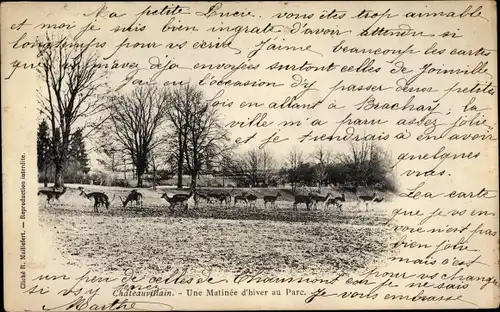 Ma petite Lucie, vous êtes trop aimable
et moi je suis bien ingrate d'avoir attendu si
longtemps pour vous écrire. J'aime beaucoup les cartes
que vous m'avez déjà envoyées surtout celles de Joinville
J'ai eu l'occasion d'y passer deux petites
fois en allant à Brachay; la
ville m'a paru assez jolie
et je tiendrais à en avoir
quelques
vues.
La carte
que je vous
envoie n'est pas
bien jolie,
mais c'est
pour vous changer
un peu de celles de Chaumont car je
sais si vous y
Je vous embrasse
Marthe
Châteauvillain. - Une Matinée d'hiver au Parc.
Cliché R. Maillefert. - Reproduction interdite.